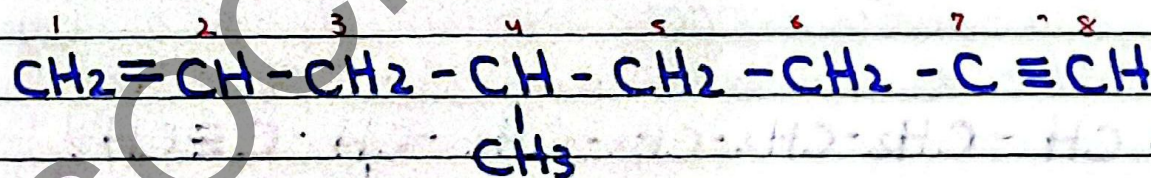 1 2 3 4 5 6 7 8
CH2=CH-CH2-CH-CH2-CH2-C≡CH
CH3